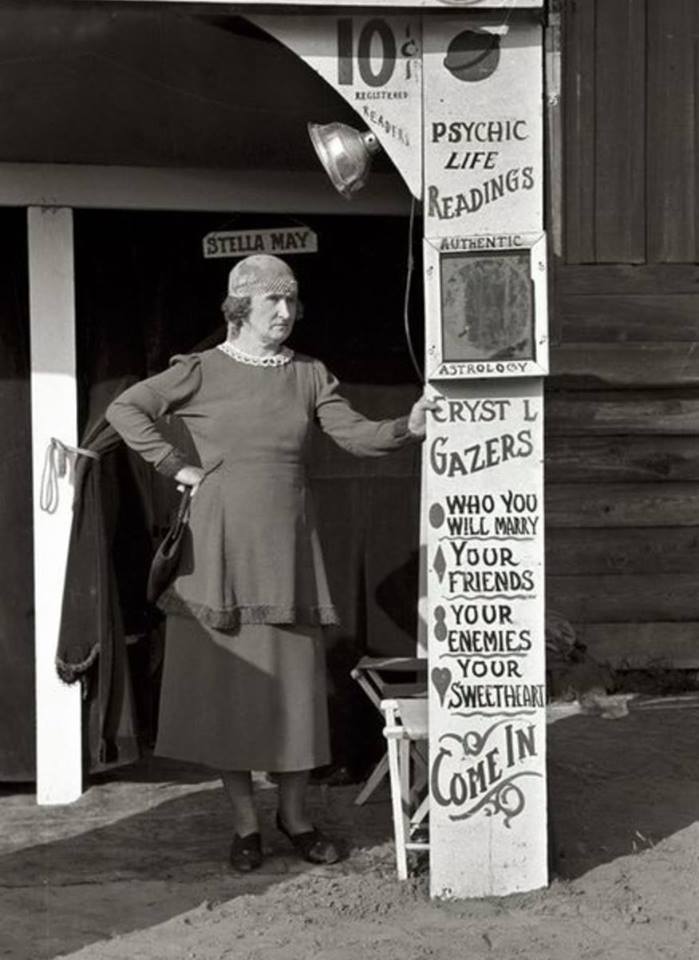 10¢
REGISTERED
READERS
PSYCHIC
LIFE
READINGS
STELLA MAY
AUTHENTIC
ASTROLOGY
CRYST L
GAZERS
WHO YOU
WILL MARRY
YOUR
FRIENDS
YOUR
ENEMIES
YOUR
SWEETHEART
COME IN